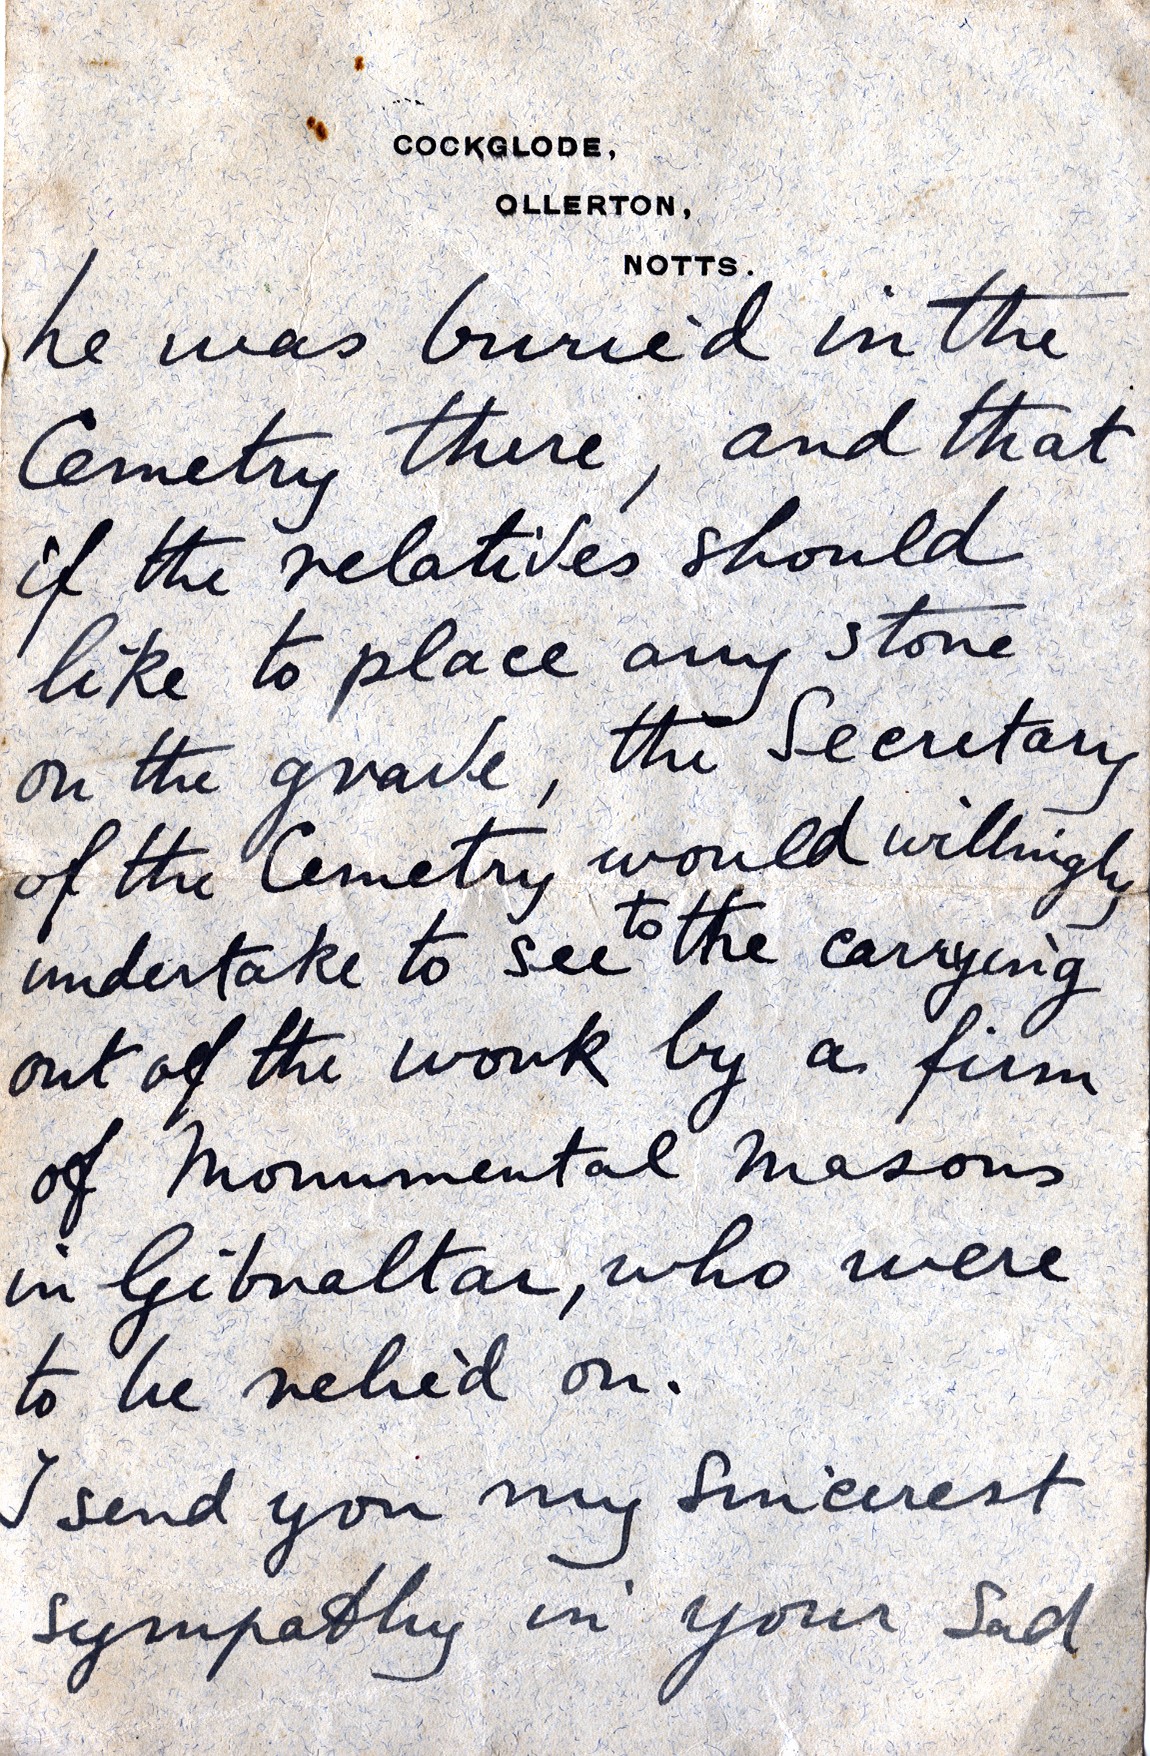 COCKGLODE,
OLLERTON,
NOTTS.
he was buried in the
Cemetry there, and that
if the relatives should
like to place any stone
on the grave, the Secretary
of the Cemetry would willingly
undertake to see to the carrying
out of the work by a firm
of Monumental Masons
in Gibraltar, who were
to be relied on.
I send you my Sincerest
sympathy in your Sad